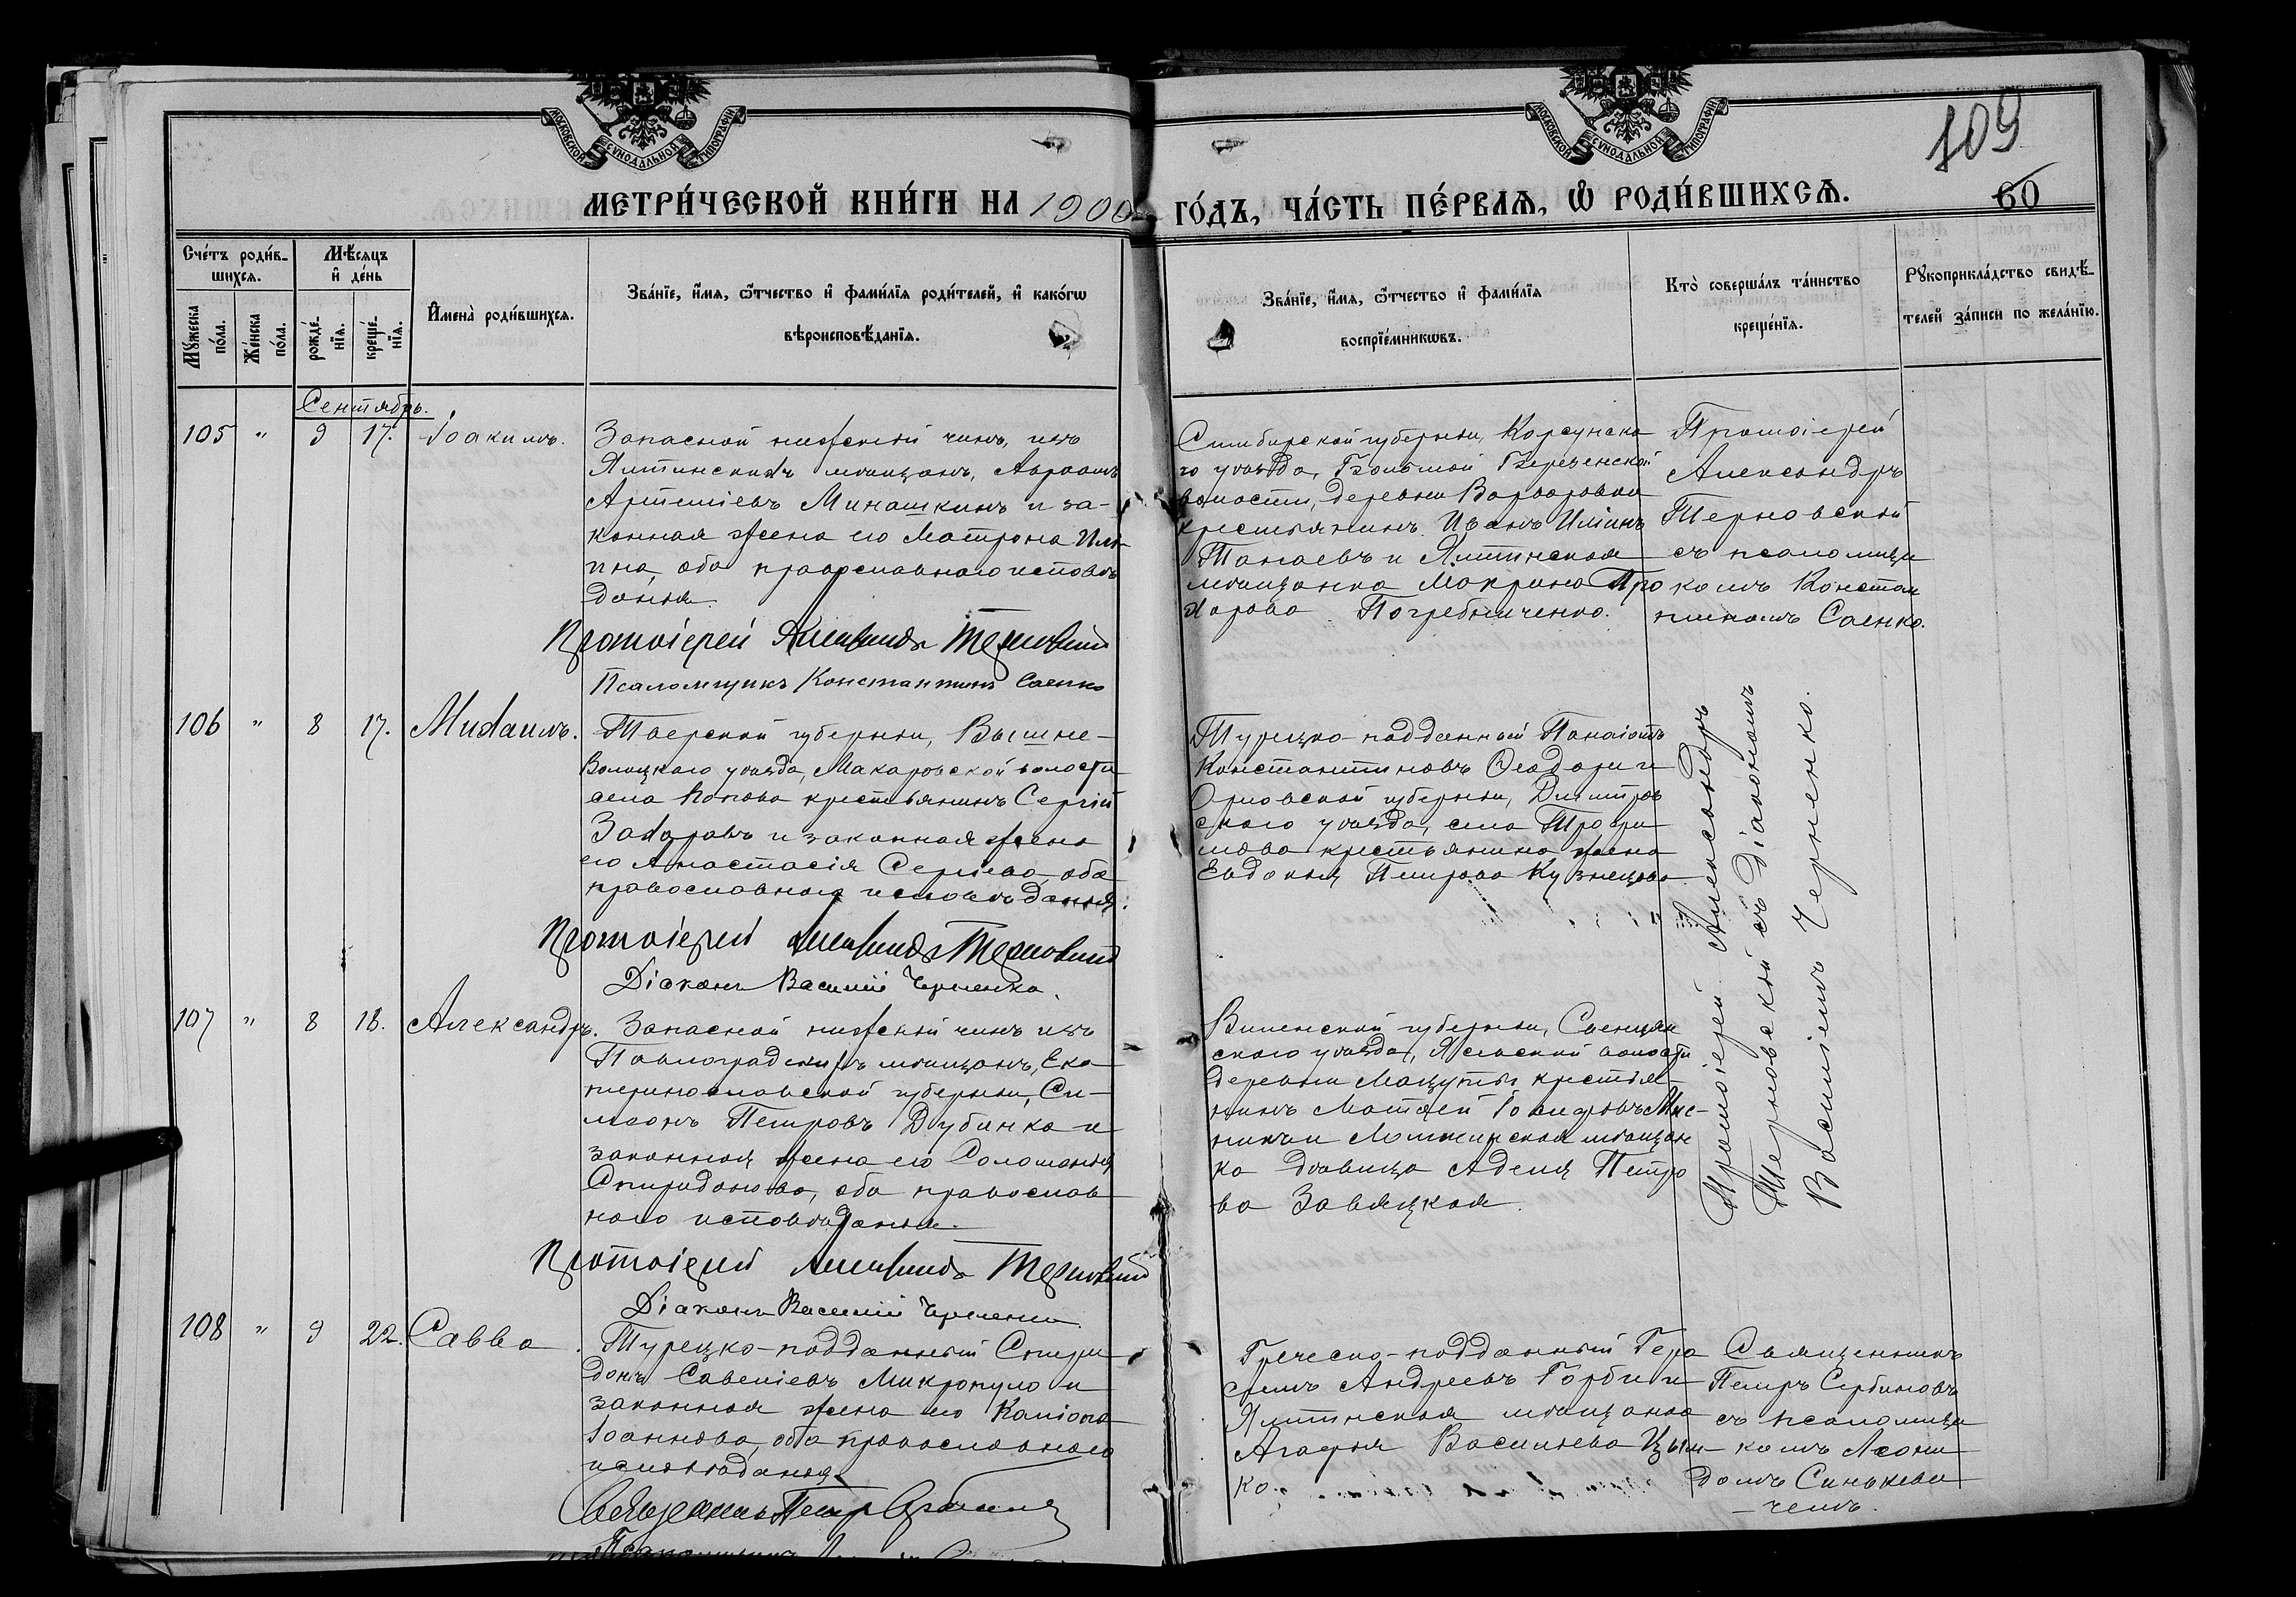 МОСКОВСКОЙ СУНОДАЛЬНОЙ ТИПОГРАФІИ
МОСКОВСКОЙ СУНОДАЛЬНОЙ ТИПОГРАФІИ
109
МЕТРИ́ЧЕСКОЙ КНИ́ГИ НА 1900 ГО́ДЪ, ЧА́СТЬ ПЕ́РВАѦ, Ѡ РОДИ́ВШИХСѦ.
60
Сче́тъ роди́в-
шихсѧ.
Мꙋжеска по́ла.
Же́нска по́ла.
Мѣ́сѧцъ
и҆ де́нь
рожде́-
нїѧ.
креще́-
нїѧ.
И҆мена̀ роди́вшихсѧ.
Зва́нїе, и҆́мѧ, ѻ҆́тчество и҆ фами́лїѧ роди́телей, и҆ како́гѡ
вѣроисповѣ́данїѧ.
Зва́нїе, и҆́мѧ, ѻ҆́тчество и҆ фами́лїѧ
воспрїе́мникѡвъ.
Кто̀ соверша́лъ та́инство
креще́нїѧ.
Рꙋкоприкла́дство свидѣ́-
телей за́писи по жела́нїю.
Сентябрь.
105 " 9 17. Іоакимъ.
Запасной нижний чинъ, изъ
Ялтинскихъ мѣщанъ, Авраамъ
Артеміевъ Минашкинъ и за-
конная жена его Матрона Иль-
ина, оба православнаго исповѣ
данія.
Протоіерей Александръ Терновскій
Псаломщикъ Константинъ Саенко
Симбирской губерніи, Корсунска
го уѣзда, Большой Березенской
волости, деревни Варваровки
крестьянинъ Иванъ Ильинъ
Танаевъ и Ялтинская
мѣщанка Макрина Про
хорова Погребниченко.
Протоіерей
Александръ
Терновский
съ псаломщи
комъ Констан
тиномъ Саенко.
106 " 8 17. Михаилъ.
Тверской губерніи, Вышне-
Волоцкаго уѣзда, Макаровской волости
села Попова крестьянинъ Сергій
Захаровъ и законная жена
его Анастасія Сергіева, оба
православнаго исповѣданія.
Протоіерей Александръ Терновскій
Діаконъ Василій Черненко.
Турецко-подданный Панаіотъ
Константиновъ Ѳеодори и
Орловской губерніи, Дмитров
скаго уѣзда, села Трофи
мова крестьянина жена
Евдокия Петрова Кузнецова
Протоіерей Александръ
Терновский съ Діакономъ
Василіемъ Черненко.
107 " 8 18. Александръ.
Запасной нижний чинъ изъ
Павлоградскихъ мѣщанъ, Ека-
теринославской губерніи, Си-
меонъ Петровъ Дубинка и
законная жена его Соломонія
Спиридонова, оба православ
наго исповѣданія.
Протоіерей Александръ Терновскій
Діаконъ Василій Черненко
Виленской губерніи, Свенцян
скаго уѣзда, Ясевской волости
деревни Мацуты крестья-
нинъ Матѳей Іосифовъ
и мѣщан
ка дѣвица Аделя Петро
ва Завяцкая.
108 " 9 22. Савва.
Турецко-подданный Спири
донъ Савеліевъ Микропуло и
законная жена его Каліопа
Іоаннова, оба православнаго
исповѣданія.
Священникъ Петръ Сербиновъ
Псаломщикъ
Греческо-подданный Гера
симъ Андреевъ Горби и
Ялтинская мѣщанка
Агафия Васильева Цым-
ко.
Священникъ
Петръ Сербиновъ
съ псаломщи
комъ Леони
домъ Синькеви
-чемъ.